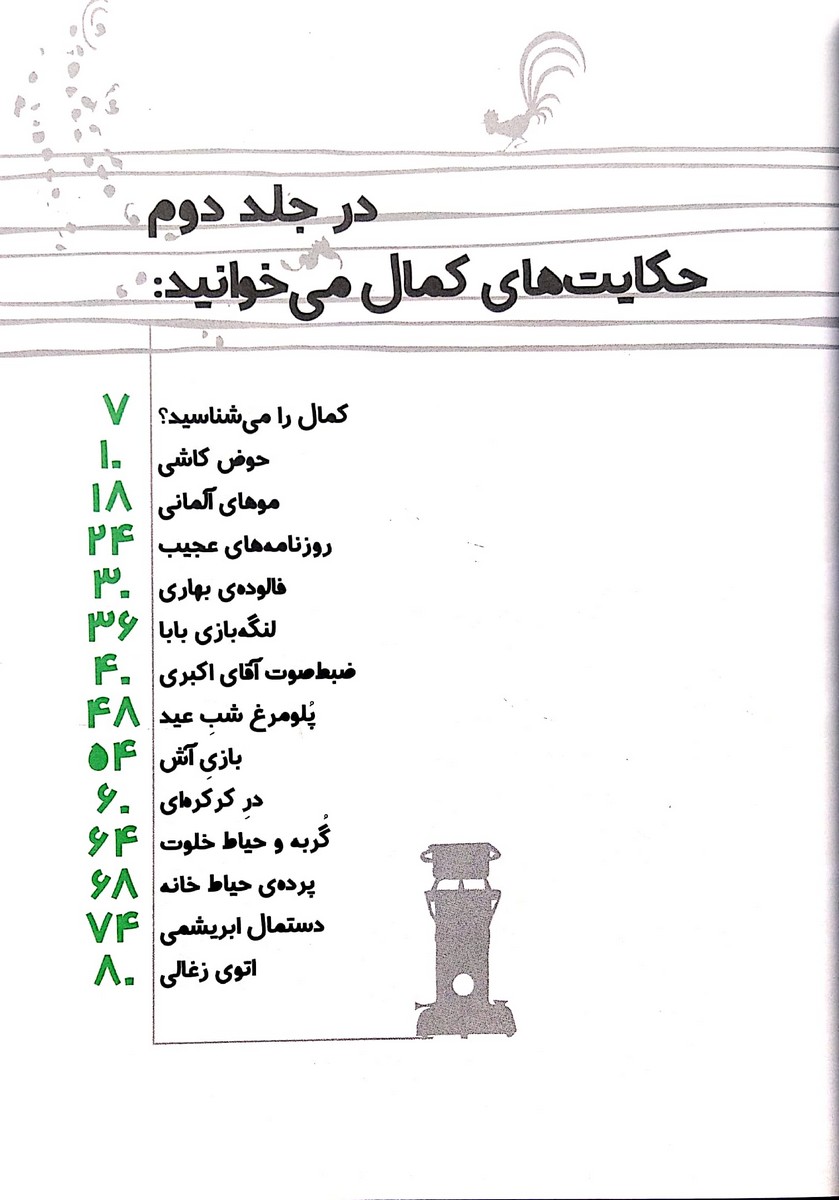 در جلد دوم
حکایت‌های کمال می‌خوانید:
کمال را می‌شناسید؟ ۷
حوض کاشی ۱۰
موهای آلمانی ۱۸
روزنامه‌های عجیب ۲۴
فالوده‌ی بهاری ۳۰
لنگه‌بازی بابا ۳۶
ضبط‌صوت آقای اکبری ۴۰
پُلومرغ شبِ عید ۴۸
بازیِ آتش ۵۴
درِ کرکره‌ای ۶۰
گُربه و حیاط خلوت ۶۴
پرده‌ی حیاط خانه ۶۸
دستمال ابریشمی ۷۴
اتوی زغالی ۸۰